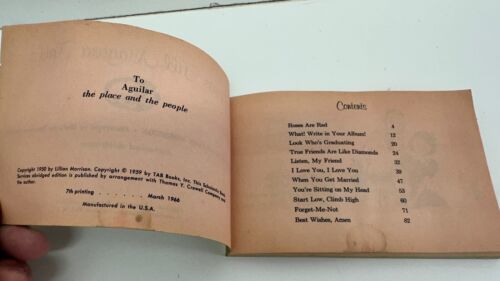 To
Aguilar
the place and the people
Copyright 1950 by Lillian Morrison. Copyright © 1959 by TAB Books, Inc. This Scholastic Book
Services abridged edition is published by arrangement with Thomas Y. Crowell Company and
the author.
7th printing . . . . . . . . . . . . . March 1966
Manufactured in the U.S.A.
Contents
Roses Are Red 4
What! Write in Your Album! 12
Look Who's Graduating 20
True Friends Are Like Diamonds 24
Listen, My Friend 32
I Love You, I Love You 39
When You Get Married 47
You're Sitting on My Head 53
Start Low, Climb High 60
Forget-Me-Not 71
Best Wishes, Amen 82